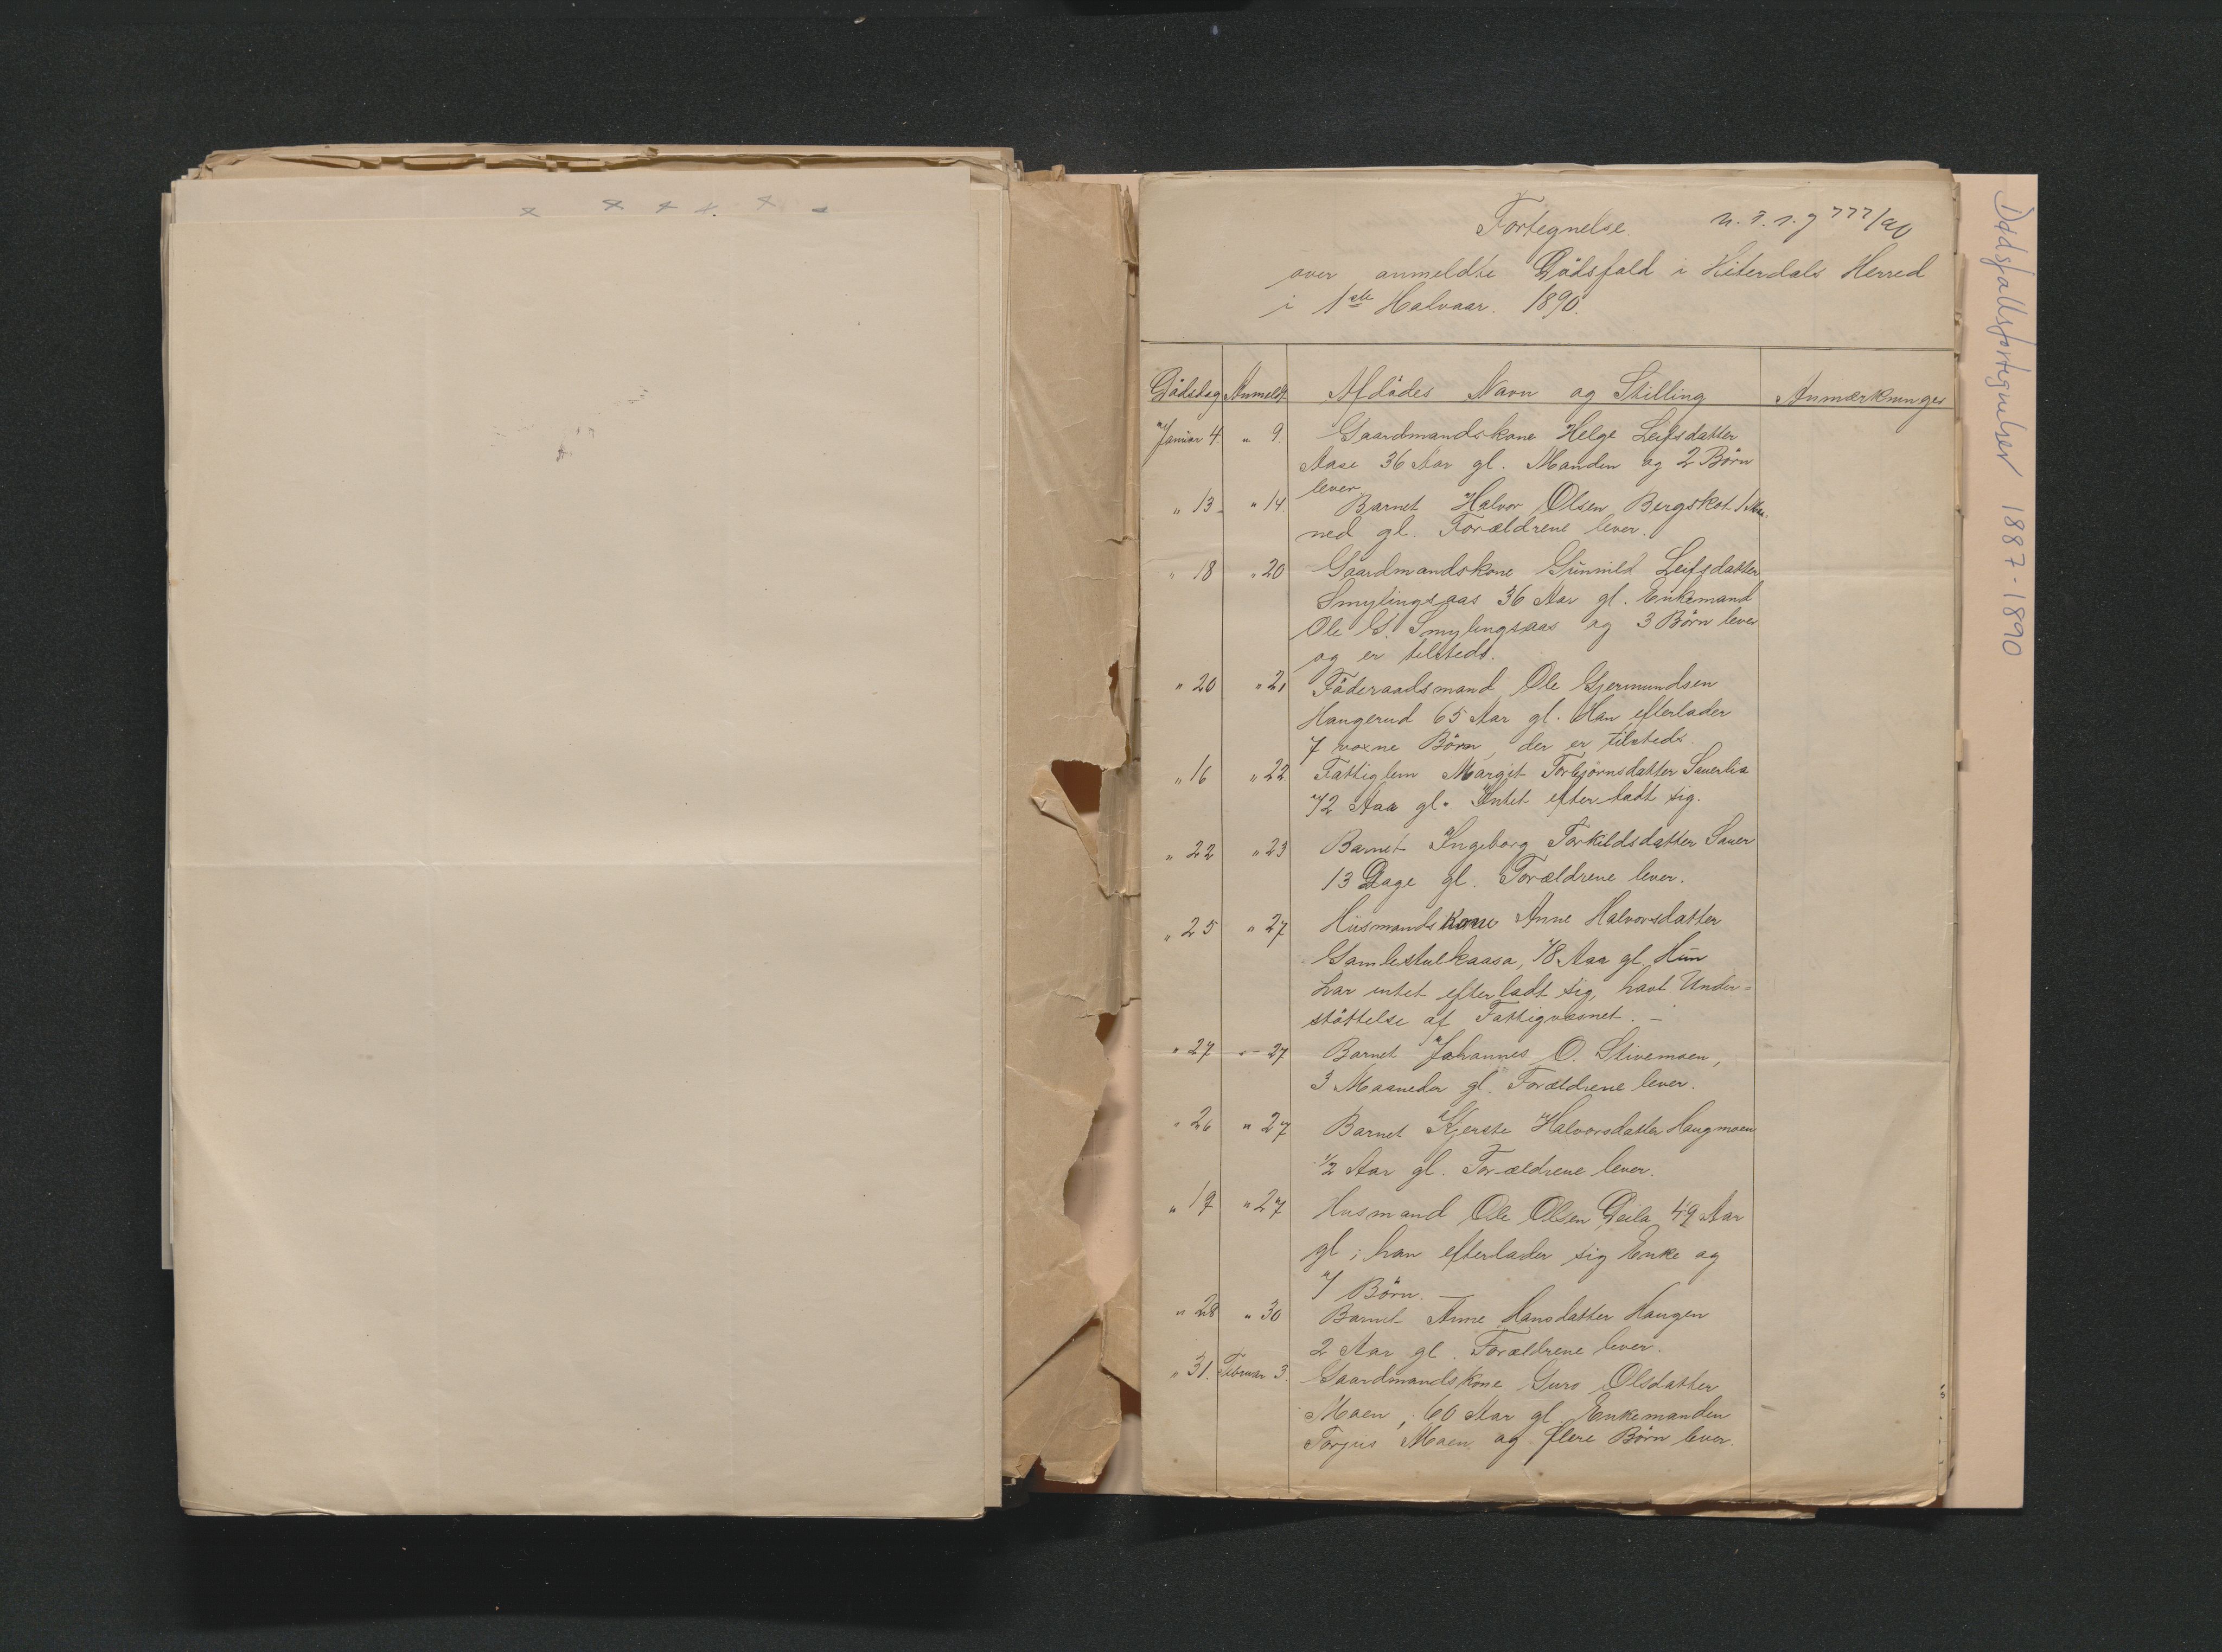 Fortegnelse
over anmeldte Dødsfald i Hiterdals Herred
i 1ste Halvaar. 1890.
Dødsdag Anmeldt Afdødes Navn og Stilling Anmærkninger
Januar 4. " 9. Gaardmandskone Helge Leifsdatter
Aase 36 Aar gl. Manden og 2 Børn
lever
" 13 " 14. Barnet Halvor Olsen Bergskot 1 Maa-
ned gl. Forældrene lever.
" 18 " 20 Gaardmandskone Gunnild Leifsdatter
Smylingsaas 36 Aar gl. Enkemand
Ole G. Smylingsaas og 3 Børn lever
og er tilsteds.
" 20 " 21 Føderaadsmand Ole Gjermundsen
Haugerud 65 Aar gl. Han efterlader
7 voxne Børn, der er tilsteds.
" 16 " 22 Fattiglem Margit Torbjørnsdatter Sauerlia
72 Aar gl. Intet efterladt sig.
" 22 " 23 Barnet Ingeborg Torkildsdatter Sauer
13 Dage gl. Forældrene lever.
" 25 " 27 Husmandskone Anne Halvorsdatter
Gamlestulkaasa, 78 Aar gl. Hun
har intet efterladt sig, havt Under=
støttelse af Fattigvæsnet. –
" 27 " 27 Barnet Johannes O. Stivemoen,
3 Maaneder gl. Forældrene lever.
" 26 " 27 Barnet Kjerste Halvorsdatter Haugmoen
1/2 Aar gl. Forældrene lever.
" 19 " 27 Husmand Ole Olsen Deila 49 Aar
gl; han efterlader sig Enke og
7 Børn. –
" 28 " 30 Barnet Anne Hansdatter Haugen
2 Aar gl. Forældrene lever.
" 31. Februar 3. Gaardmandskone Guro Olsdatter
Moen, 60 Aar gl. Enkemanden
Torjus Moen og flere Børn lever.
Dødsfallsfortegnelser 1887-1890